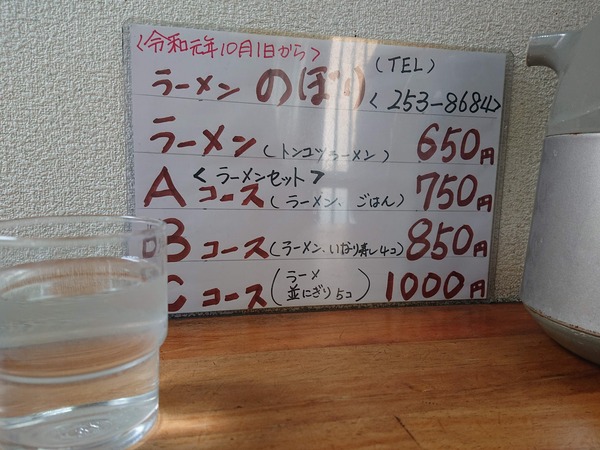 <令和元年10月1日から>
ラーメン のぼり (TEL) <253-8684>
ラーメン (トンコツラーメン) 650円
<ラーメンセット>
A コース (ラーメン、ごはん) 750円
B コース (ラーメン、いなり寿し4コ) 850円
C コース (ラーメ 並にぎり5コ) 1000円